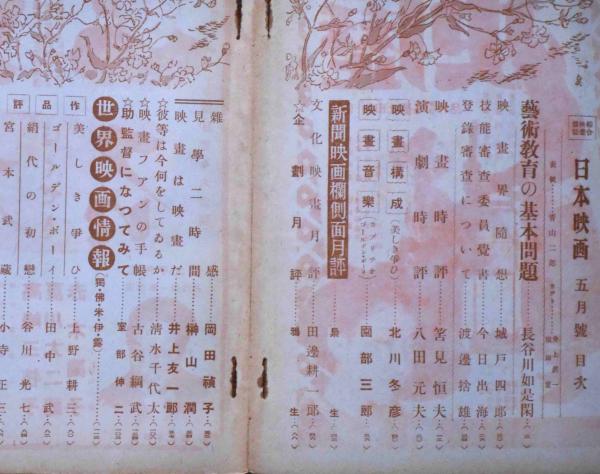 日本映画 五月號 目次
表紙……青山二郎
藝術教育の基本問題……長谷川如是閑
映畫界隨想……城戸四郎
技能審査委員覺書……今日出海
登錄審査について……渡邊捨雄
映畫時評……筈見恒夫
演劇時評……八田元夫
映畫構成(美しき爭ひ)……北川冬彦
映畫音樂……園部三郎
新聞映画欄側面月評……生
文化映畫月評……田邊耕一郎
☆企劃月評……生
雜感……岡田禎子
見學二時間……榊山潤
映畫は映畫だ……井上友一郎
☆彼等は今何をしてゐるか……清水千代太
☆映畫ファンの手帳……古谷綱武
☆助監督になつてみて……室部伸二
世界映画情報(獨・佛・米・伊・露)
作品評
美しき爭ひ……上野耕三
ゴールデン・ボーイ……田中武
絹代の初戀……谷川光七
宮本武藏……小寺正三